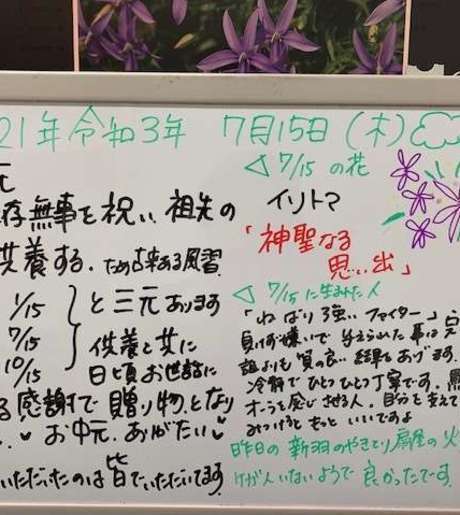 21年令和3年 7月15日(木)
元
存無事を祝い 祖先の
供養する。ため古来ある風習
1/15
7/15
10/15
と三元あります
供養と共に
日頃お世話に
る感謝で贈り物となり
お中元。ありがたい
いただいたのは皆でいただいてます
◁7/15の花
イソトマ
「神聖なる
思い出」
◁7/15に生まれた人
「ねばり強いファイター」
負けず嫌いで与えられた事は完
誰よりも質の良い結果をあげます。
冷静でひとつひとつ丁寧です。
オーラを感じさせる人。自分を支えて
もっといいですよ
昨日の新羽のやきとり扇屋の火
けが人いないようで良かったです。